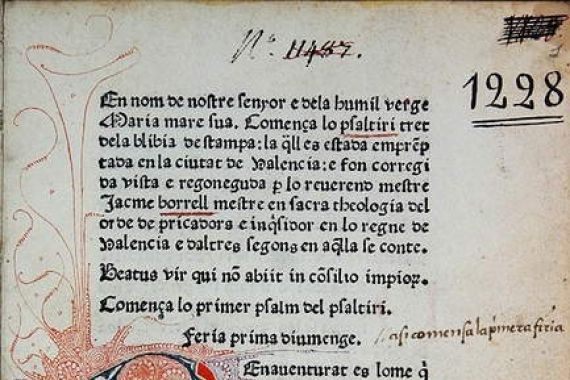 Nº 11487.
1228
En nom de nostre senyor e dela humil verge
Maria mare sua. Comença lo psaltiri tret
dela blibia de stampa: la q̄ll es estada emprēp
tada en la ciutat de Valencia: e fon corregi
da vista e regoneguda p̱ lo reuerend mestre
Jacme borrell mestre en sacra theologia del
orde de pricadors e inq̄sidor en lo regne de
Valencia e daltres segons en aq̄lla se conte.
Beatus vir qui nō abiit in cōsilio impioꝝ.
Comença lo primer psalm del psaltiri.
Feria prima diumenge.
asi comensa la pͥmera firia
Enauenturat es lome q̄